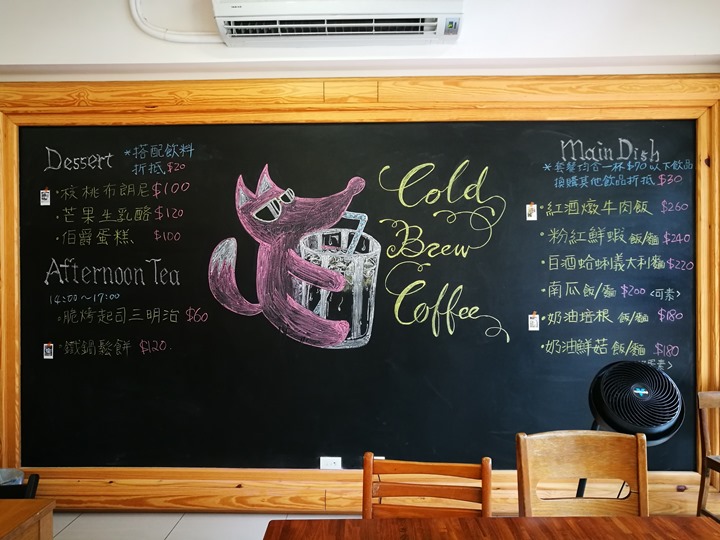 Dessert *搭配飲料
折抵$20
·核桃布朗尼$100
·芒果生乳酪$120
·伯爵蛋糕 $100
Afternoon Tea
14:00~17:00
·脆烤起司三明治 $60
·鐵鍋鬆餅 $120.
Cold
Brew
Coffee
Main Dish
*套餐均含一杯$70以下飲品
換購其他飲品折抵$30
·紅酒燉牛肉飯 $260
·粉紅鮮蝦飯/麵 $240
·白酒蛤蜊義大利麵$220
·南瓜飯/麵 $200 <可素>
·奶油培根飯/麵 $180
·奶油鮮菇飯/麵 $180